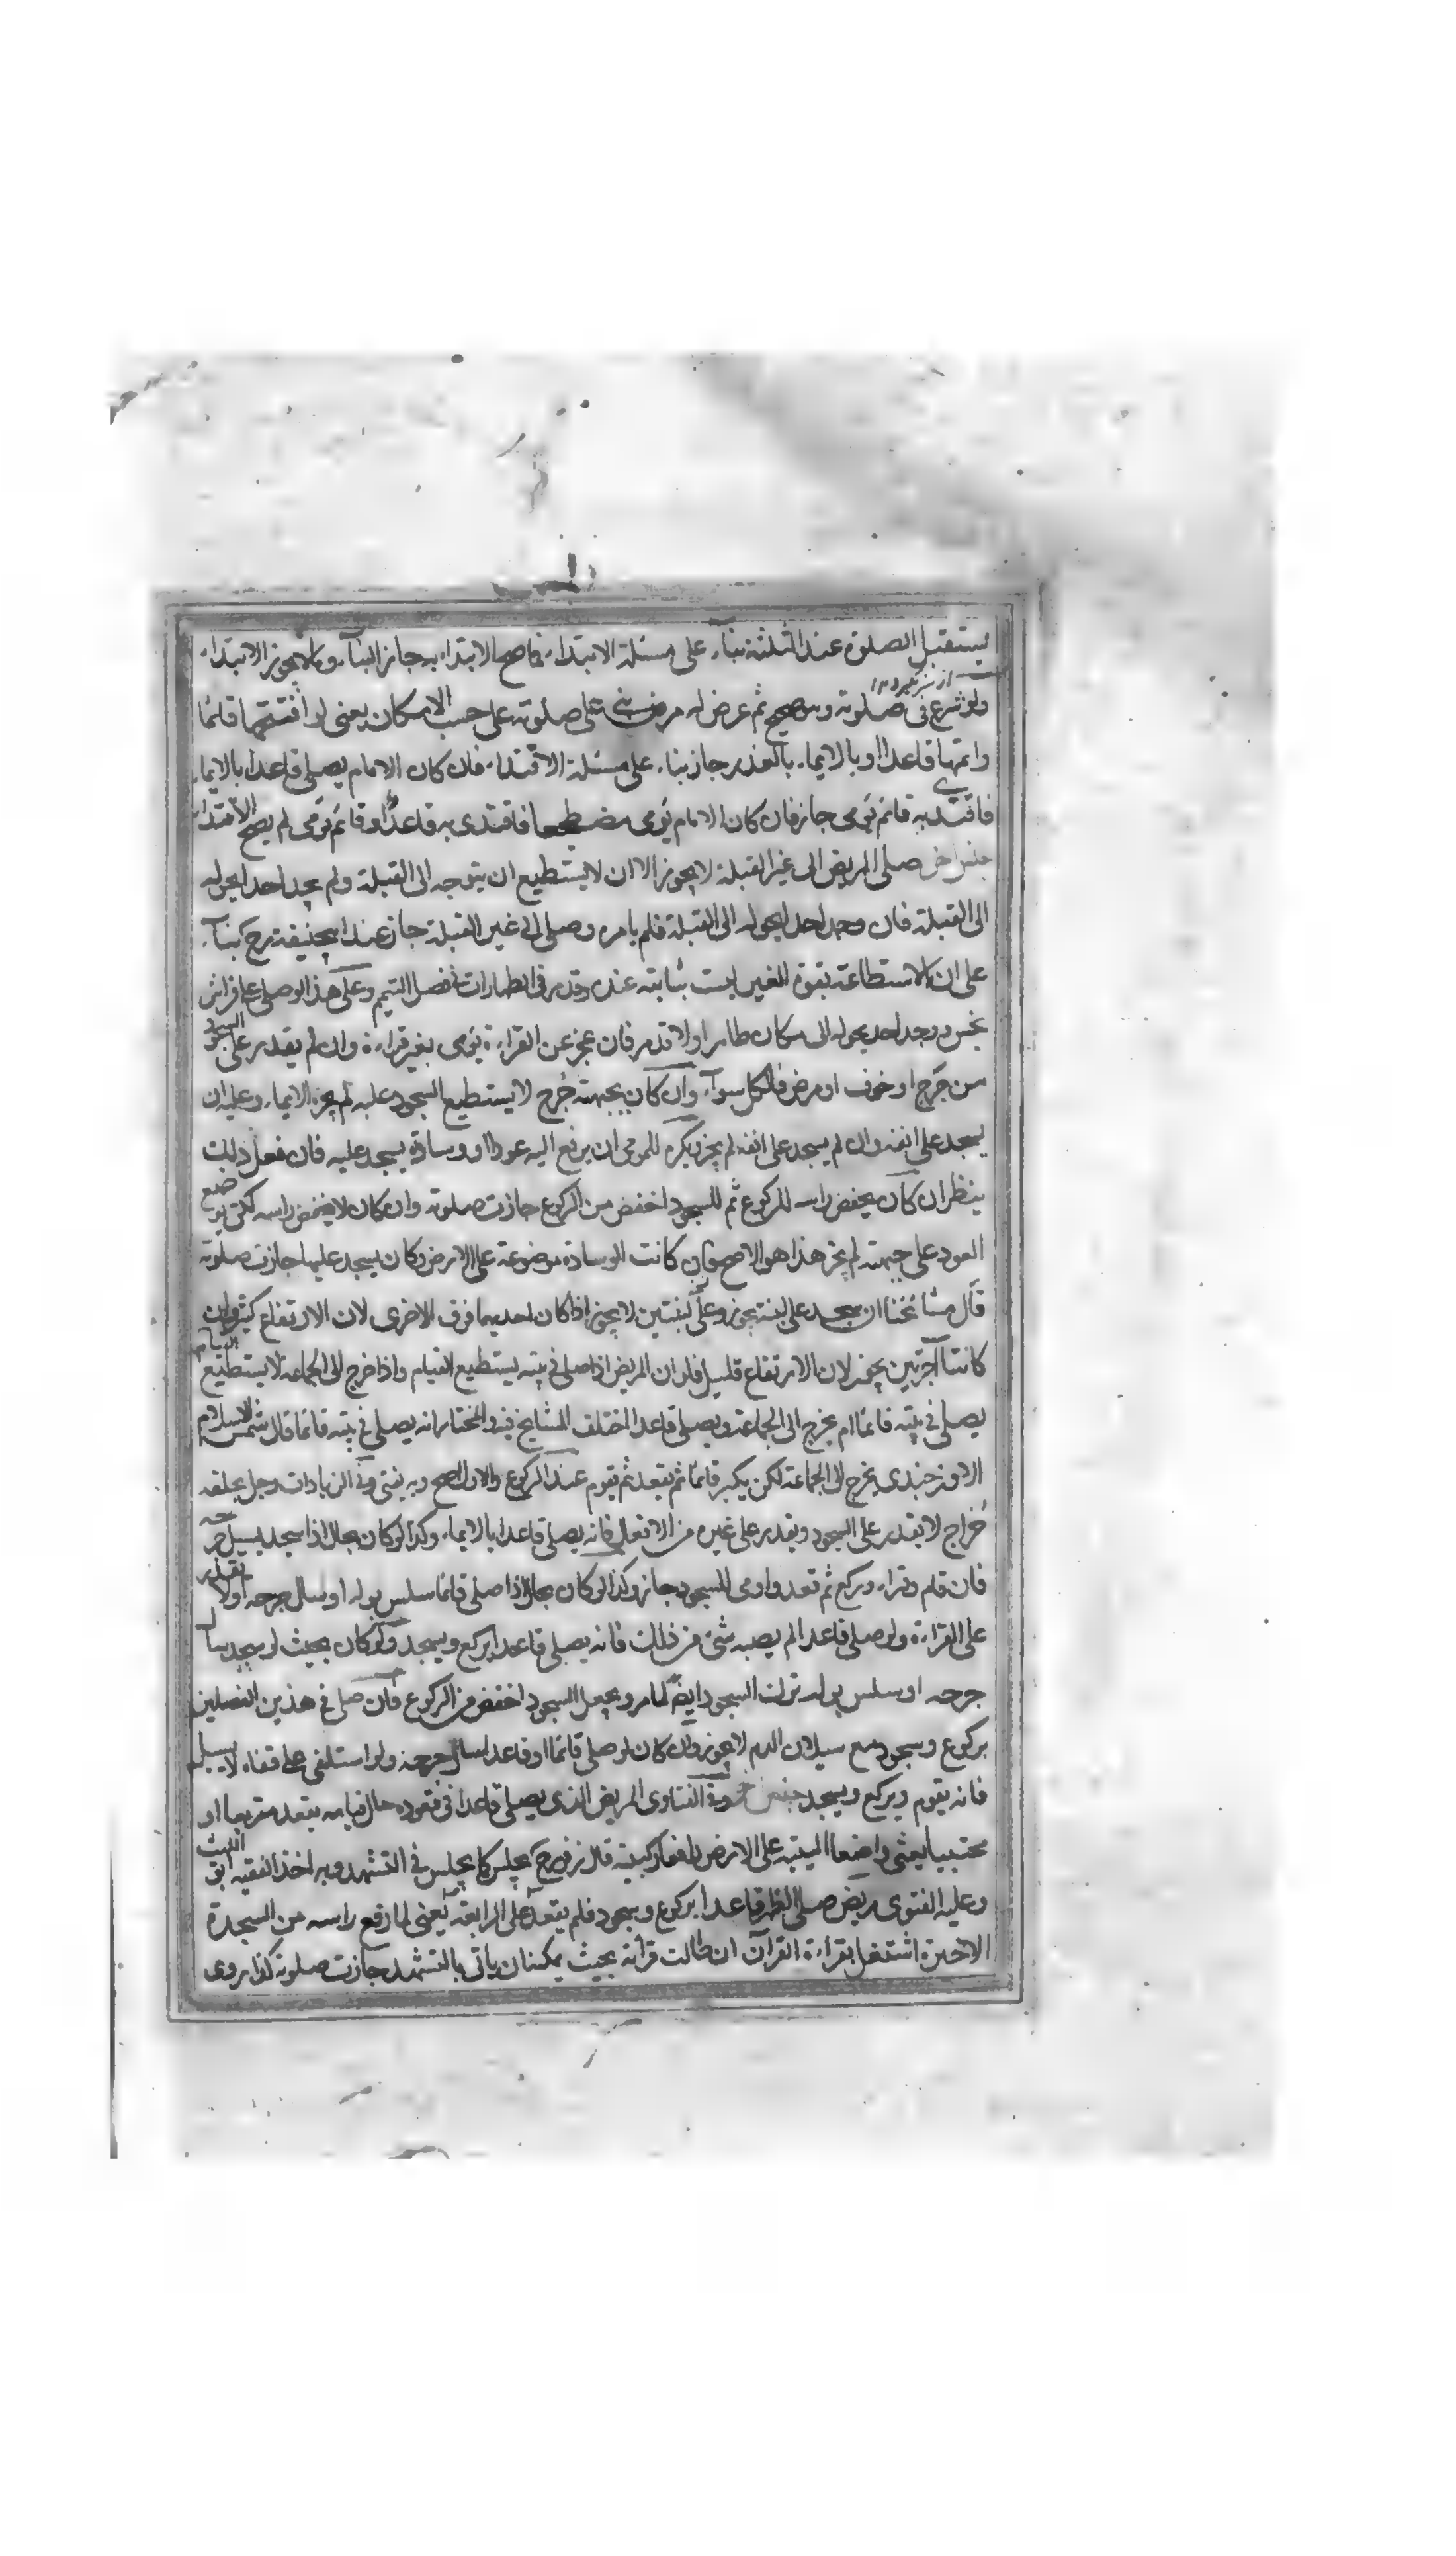 يستقبل الصلوة عند الثلثة بناء على مسئلة الابتداء فما صح الابتداء به جاز البناء وما لا يجوز الابتداء
ولو شرع فى صلوته وهو صحيح ثم عرض له مرض بنى على صلوته على حسب الامكان يعنى لو افتتحها قائما
واتمها قاعدا او بالايماء بالعذر جاز بناء على مسئلة الاقتداء فان كان الامام يصلى قاعدا بالايماء
فاقتدى به قائم يومى جاز فان كان الامام يومى مضطجعا فاقتدى به قاعدا او قائم يومى لم يصح الاقتداء
جنس اخر صلى المريض الى غير القبلة لا يجوز الا ان لا يستطيع ان يتوجه الى القبلة ولم يجد احدا يحوله
الى القبلة فان وجد احدا يحوله الى القبلة فلم يامره وصلى الى غير القبلة جاز عند ابيحنيفة رح بناء
على ان الاستطاعة بقوة الغير ليست بثابته عنده وقد مر فى الطهارات فى فصل التيمم وعلى هذا لو صلى على فراش
نجس ووجد احدا يحوله الى مكان طاهر اولا قدمر فان عجز عن القراءة يومى بغير قراءة وان لم يقدر على السجود
من جرح او خوف او مرض فالكل سواء وان كان بجبهته جرح لا يستطيع السجود عليه لم يجزه الايماء وعليه ان
يسجد على انفه وان لم يسجد على انفه لم يجز ويكره للمومى ان يرفع اليه عودا او وسادة يسجد عليه فان فعل ذلك
ينظر ان كان يخفض راسه للركوع ثم للسجود اخفض من الركوع جازت صلوته وان كان لا يخفض راسه لكن يوضع
العود على جبهته لم يجز هذا هو الاصح فان كانت الوسادة موضوعة على الارض وكان يسجد عليها جازت صلوته
قال مشائخنا ان سجد على لبنة يجوز وعلى لبنتين لا يجوز اذا كان احديهما فوق الاخرى لان الارتفاع كثير وان
كانتا آجرتين يجوز لان الارتفاع قليل فلو ان المريض اذا صلى فى بيته يستطيع القيام واذا خرج الى الجماعة لا يستطيع القيام
يصلى فى بيته قائما ام يخرج الى الجماعة ويصلى قاعدا اختلف المشايخ فيه والمختار انه يصلى فى بيته قائما قال شمس الاسلام
الاوزجندى يخرج الى الجماعة لكن يكبر قائما ثم يقعد ثم يقوم عند الركوع والاول اصح وبه يفتى وفى الزيادات رجل بحلقه
خراج لا يقدر على السجود ويقدر على غيره من الافعال فانه يصلى قاعدا بالايماء وكذا لو كان بحال اذا سجد يسيل جرحه
فان قام وقراء وركع ثم قعد واومى للسجود جاز وكذا لو كان بحال اذا صلى قائما سلس بوله او سال جرحه اولا يقدر
على القراءة ولو صلى قاعدا لم يصبه شئ من ذلك فانه يصلى قاعدا يركع ويسجد ولو كان بحيث لو سجد سال
جرحه او سلس بوله ترك السجود ايضا لما مر ويجعل السجود اخفض من الركوع فان صلى فى هذين الفصلين
بركوع وسجود مع سيلان الدم لا يجوز وان كان لو صلى قائما او قاعدا سال جرحه ولو استلقى على قفاه لا يسيل
فانه يقوم ويركع ويسجد جنس وفى الفتاوى المريض الذى يصلى قاعدا فى قعوده حال قيامه يقعد متربعا او
محتبيا يعنى واضعا اليتيه على الارض رافعا ركبتيه قال زفر رح يجلس كما يجلس فى التشهد وبه اخذ الفقيه ابو الليث
وعليه الفتوى مريض صلى الظهر قاعدا بركوع وسجود فلم يقعد على الرابعة يعنى لما رفع راسه من السجدة
الاخيرة اشتغل بقراءة القرآن ان طالت قرأته بحيث يمكنه ان ياتى بالتشهد جازت صلوته كذا روى